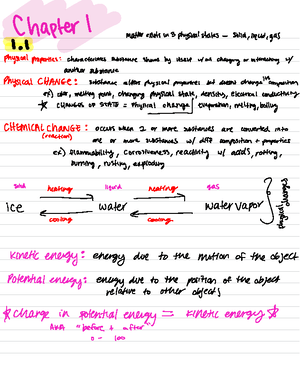 Chapter 1
1.1
matter exists in 3 physical states – solid, liquid, gas
physical properties: characteristics substance shows by itself w/o changing or interacting w/
another substance
Physical CHANGE: substance alters physical properties but doesn't change its composition
ex) color, melting point, changing physical state, density, electrical conductivity
* CHANGES OF STATE = Physical change / evaporation, melting, boiling
CHEMICAL CHANGE: occurs when 2 or more substances are converted into
(reaction)
one or more substances w/ diff composition + properties
ex) flammability, corrosiveness, reactivity w/ acids, rotting,
burning, rusting, exploding
solid heating liquid heating gas
ice water water vapor
cooling cooling
physical changes
kinetic energy: energy due to the motion of the object
Potential energy: energy due to the position of the object
relative to other objects
* change in potential energy = kinetic energy *
AKA "before + after"
0 - 100